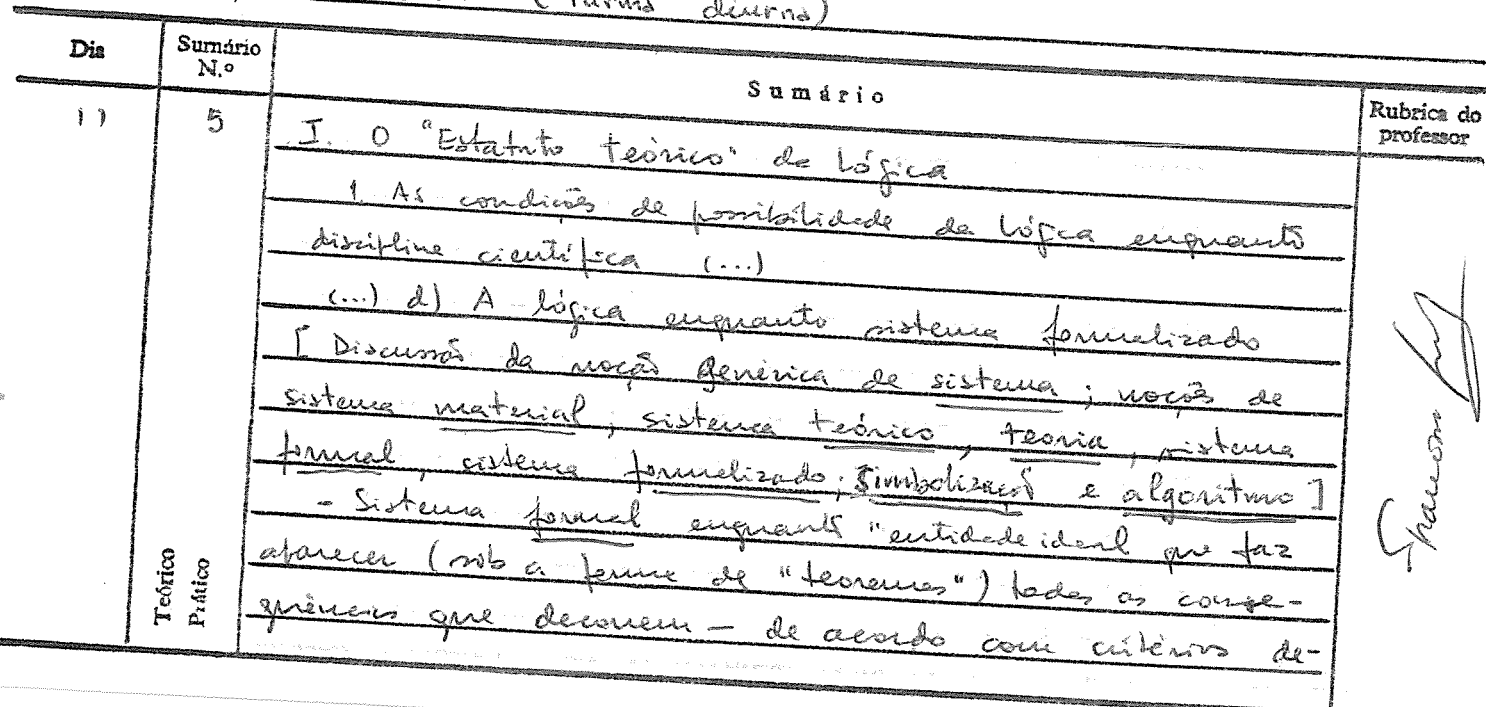 (turma diurna)
Dia
Sumário N.º
Sumário
Rubrica do professor
11
5
I. O "Estatuto teórico" da Lógica
1. As condições de possibilidade da Lógica enquanto
disciplina científica (...)
(...) d) A lógica enquanto sistema formalizado
[Discussão da noção genérica de sistema; noções de
sistema material, sistema teórico, teoria, sistema
formal, sistema formalizado; simbolização e algoritmo]
- Sistema formal enquanto "entidade ideal que faz
aparecer (sob a forma de "teoremas") todas as conse-
quências que decorrem - de acordo com critérios de-
Teórico
Prático